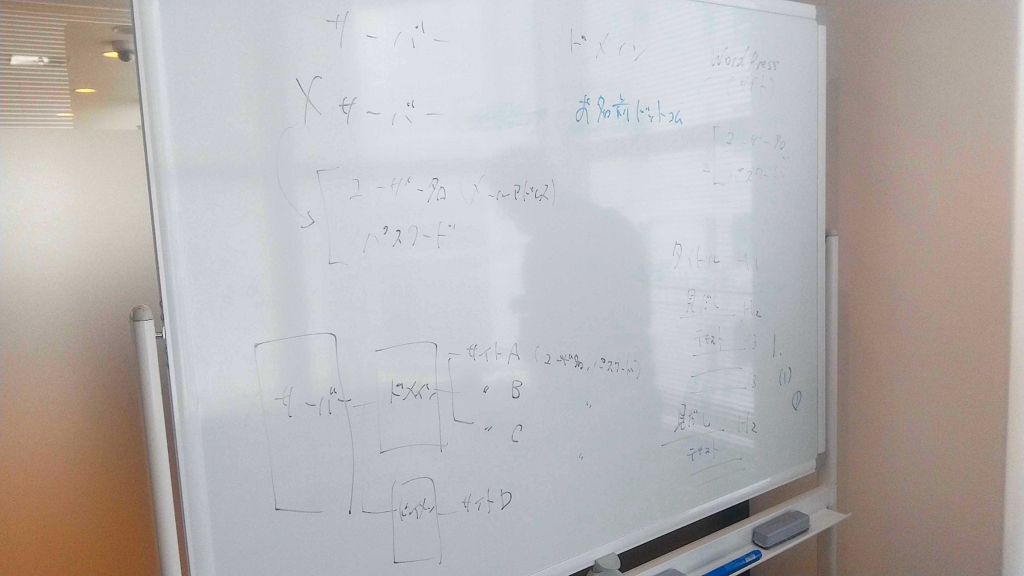 サーバー
Xサーバー
ユーザー名 (メールアドレス)
パスワード
ドメイン
お名前ドットコム
WordPress
ユーザー名
パスワード
タイトル H1
見だし H2
テキスト H3
1.
(1)
①
見だし H2
テキスト
サーバー
ドメイン
サイトA (ユーザー名, パスワード)
〃 B 〃
〃 C 〃
ドメイン
サイトD